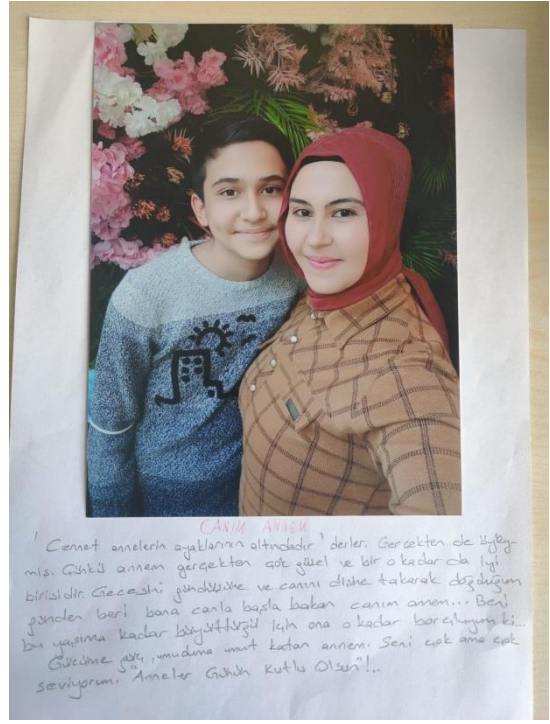 CANIM ANNEM
'Cennet annelerin ayaklarının altındadır' derler. Gerçekten de öyley-
miş. Çünkü annem gerçekten çok güzel ve bir o kadar da iyi
birisidir. Gecesini gündüzüne ve canını dişine takarak doğduğum
günden beri bana canla başla bakan canım annem... Beni
bu yaşıma kadar büyüttüğü için ona o kadar borçluyum ki...
Gücüme güç, umuduma umut katan annem. Seni çok ama çok
seviyorum. "Anneler Günün Kutlu Olsun"!..